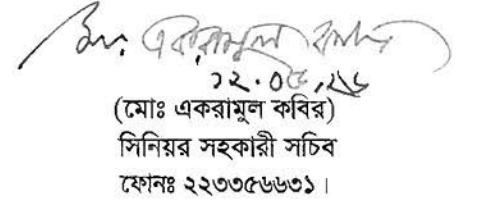 মোঃ একরামুল কবির
১২.০৫.২৬
(মোঃ একরামুল কবির)
সিনিয়র সহকারী সচিব
ফোনঃ ২২৩৩৫৬৬৩১।